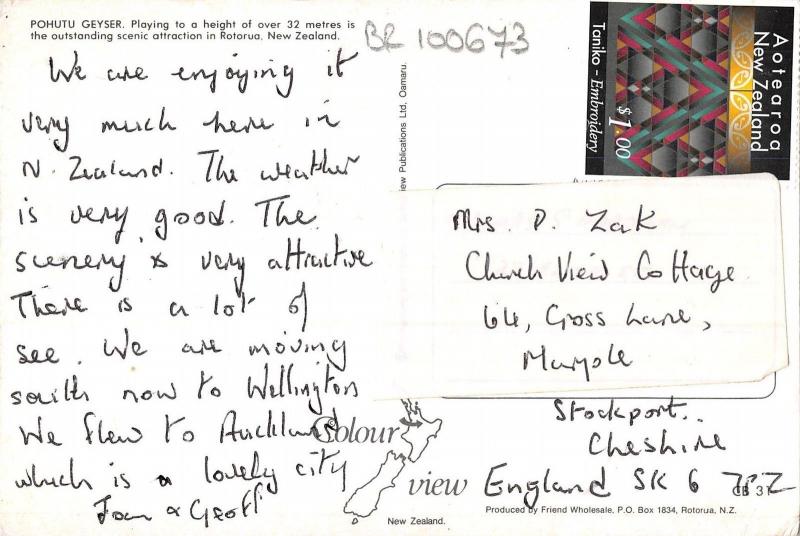 POHUTU GEYSER. Playing to a height of over 32 metres is
the outstanding scenic attraction in Rotorua, New Zealand.
BR 100673
We are enjoying it
very much here in
N. Zealand. The weather
is very good. The
scenery is very attractive
There is a lot of
see. We are moving
south now to Wellington
We flew to Auckland
which is a lovely city
Joan & Geoff
iew Publications Ltd, Oamaru.
Aotearoa
New Zealand
Taniko - Embroidery
$1.00
Mrs. D. Zak
Church View Cottage
64, Cross Lane,
Marple
Stockport..
Cheshire
England SK 6
Colour
view
New Zealand.
CB 31
Produced by Friend Wholesale, P.O. Box 1834, Rotorua, N.Z.